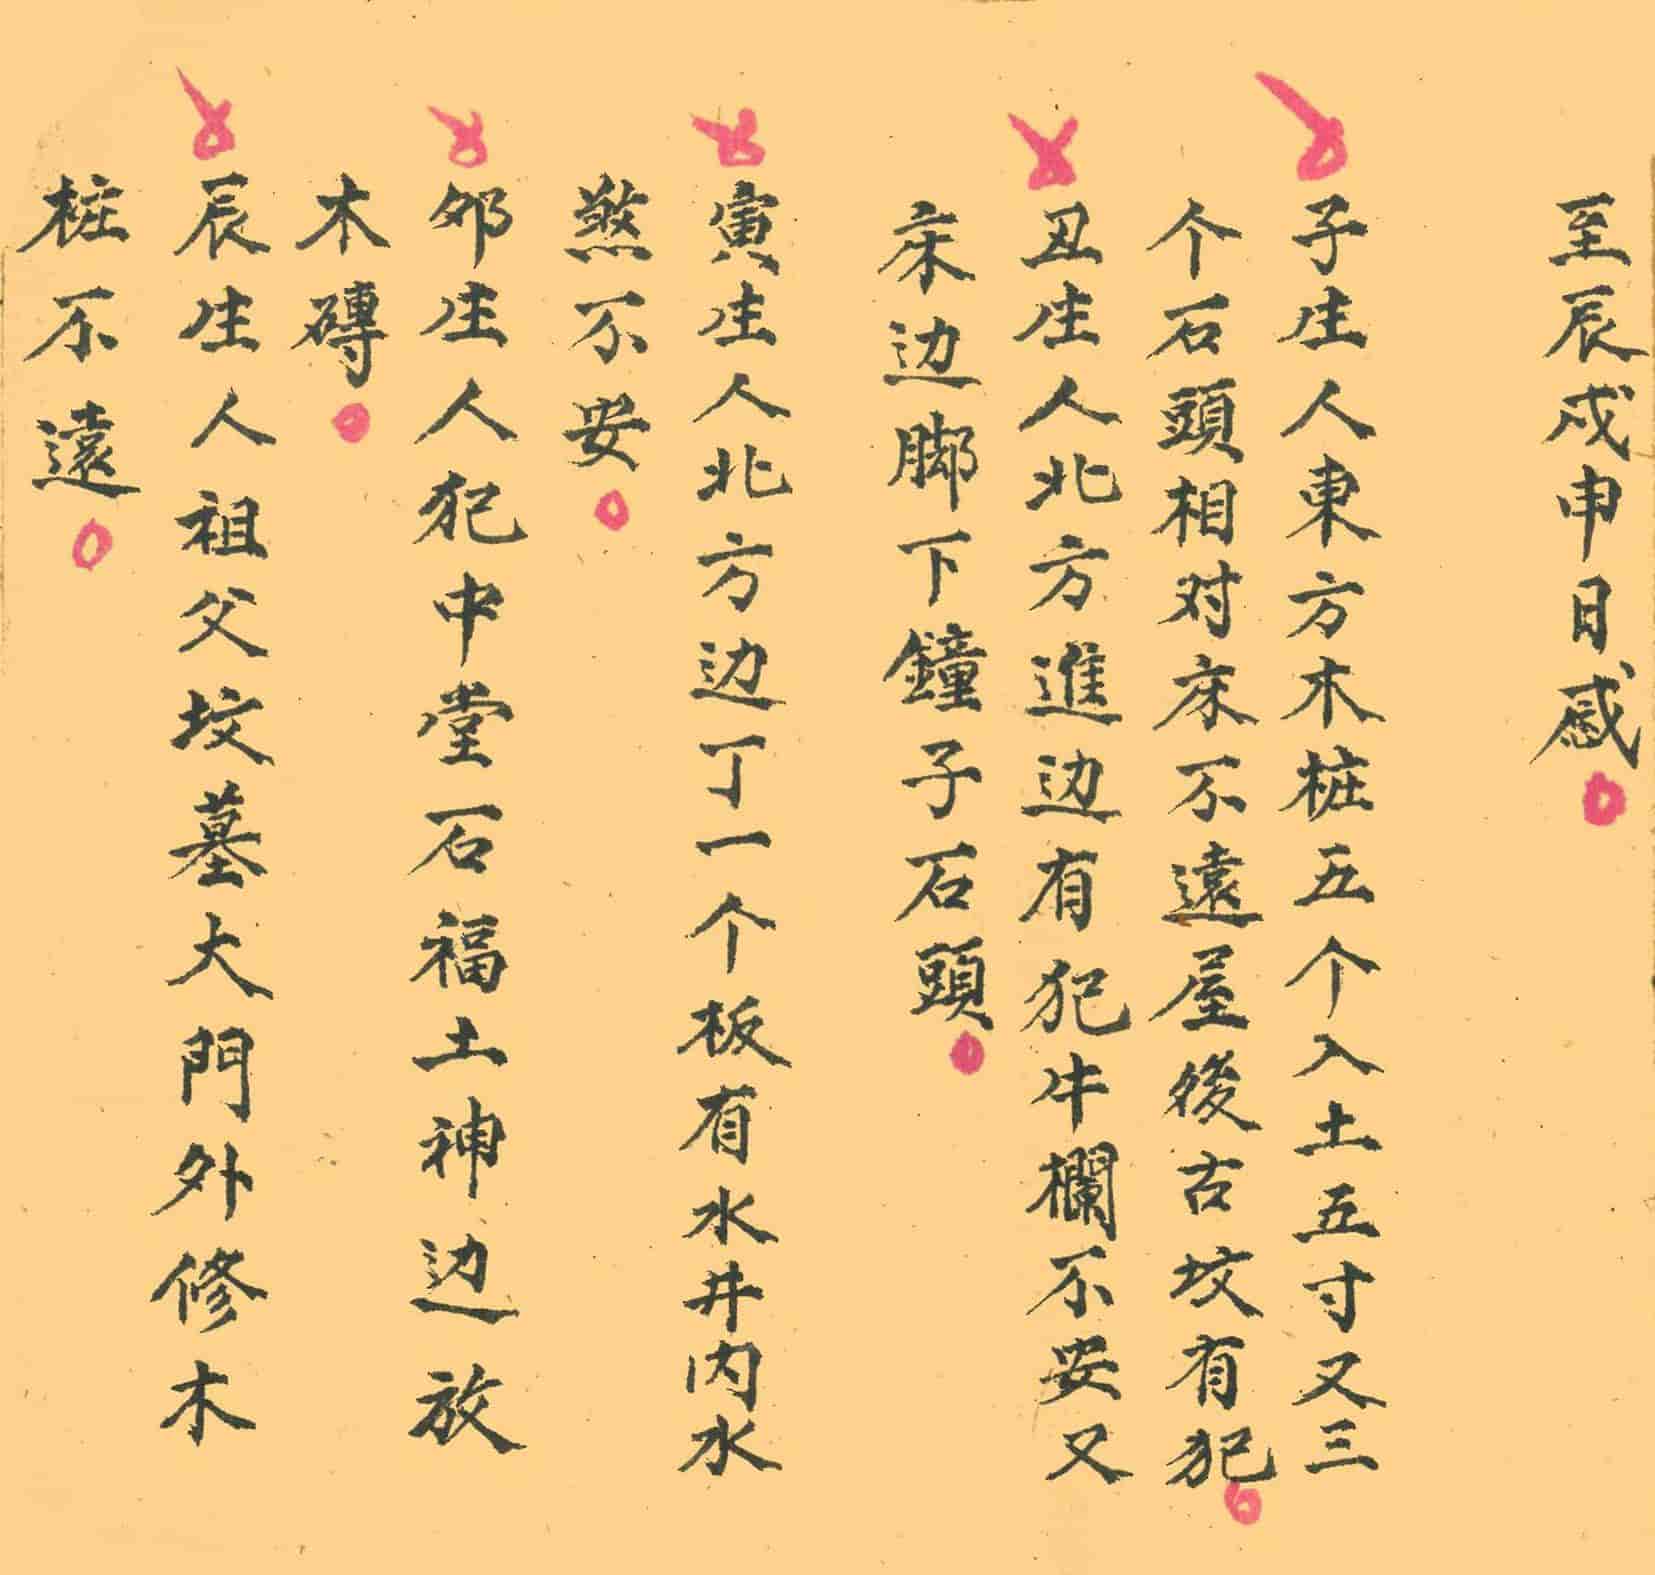 至辰戌申日感
子生人東方木桩五个入土五寸又三
个石頭相对床不遠屋後古坟有犯
丑生人北方進边有犯牛欄不安又
床边脚下鐘子石頭
寅生人北方边丁一个板有水井内水
煞不安
夘生人犯中堂石福土神边放
木磚
辰生人祖父坟墓大門外修木
桩不遠